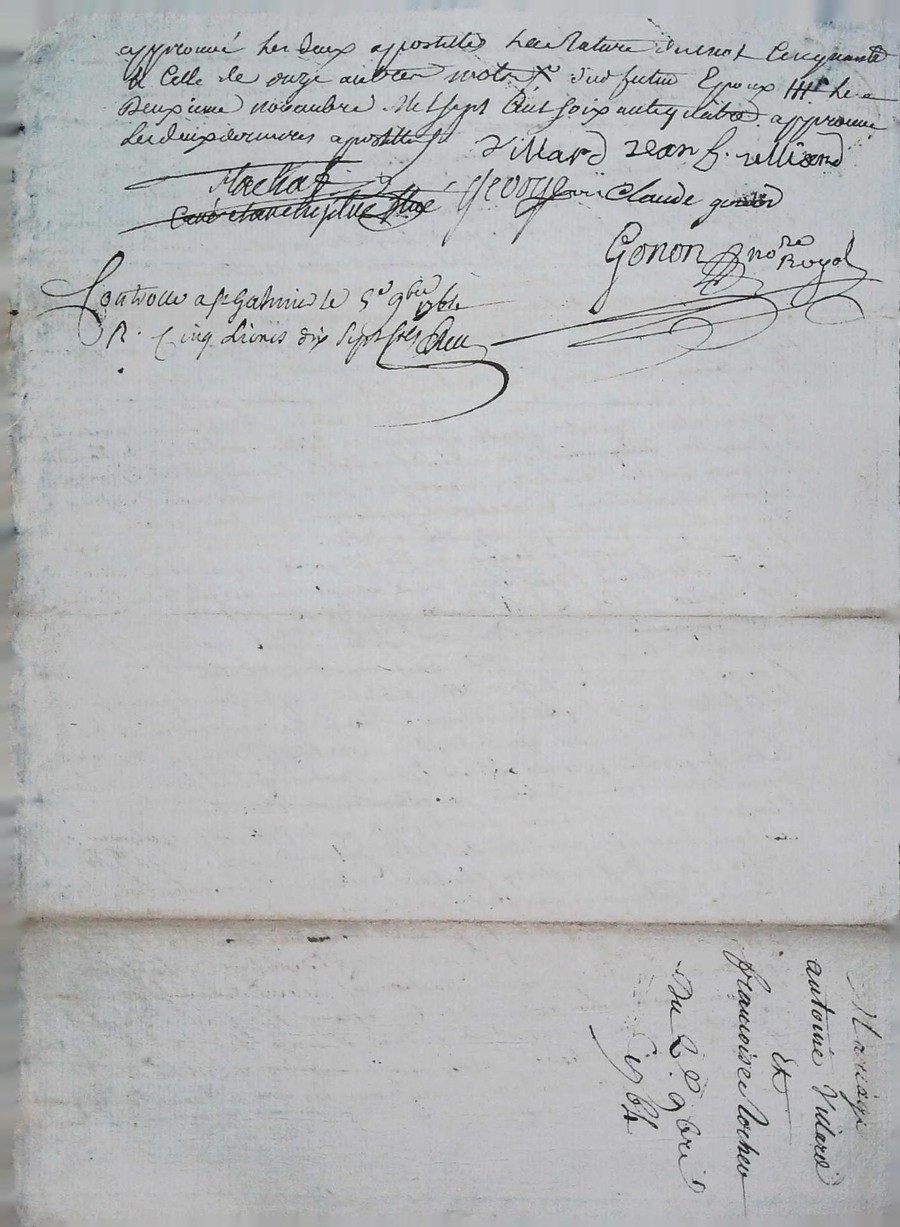 approuvé les deux apostilles la rature d'un mot cinquante
& Celle de onze autres mots dud futur Epoux le
deuxieme novembre Mil sept Cent soixante quatre approuvé
les deux dernieres apostilles
villard Jean
George Claude
Gonon no.re Royal
Controllé a St Galmier le 5e 9bre 1764
R. Cinq Livres dix sept sols
Mariage
antoine Vilard
&
francoise Rocher
Du 2e 9bre
1764